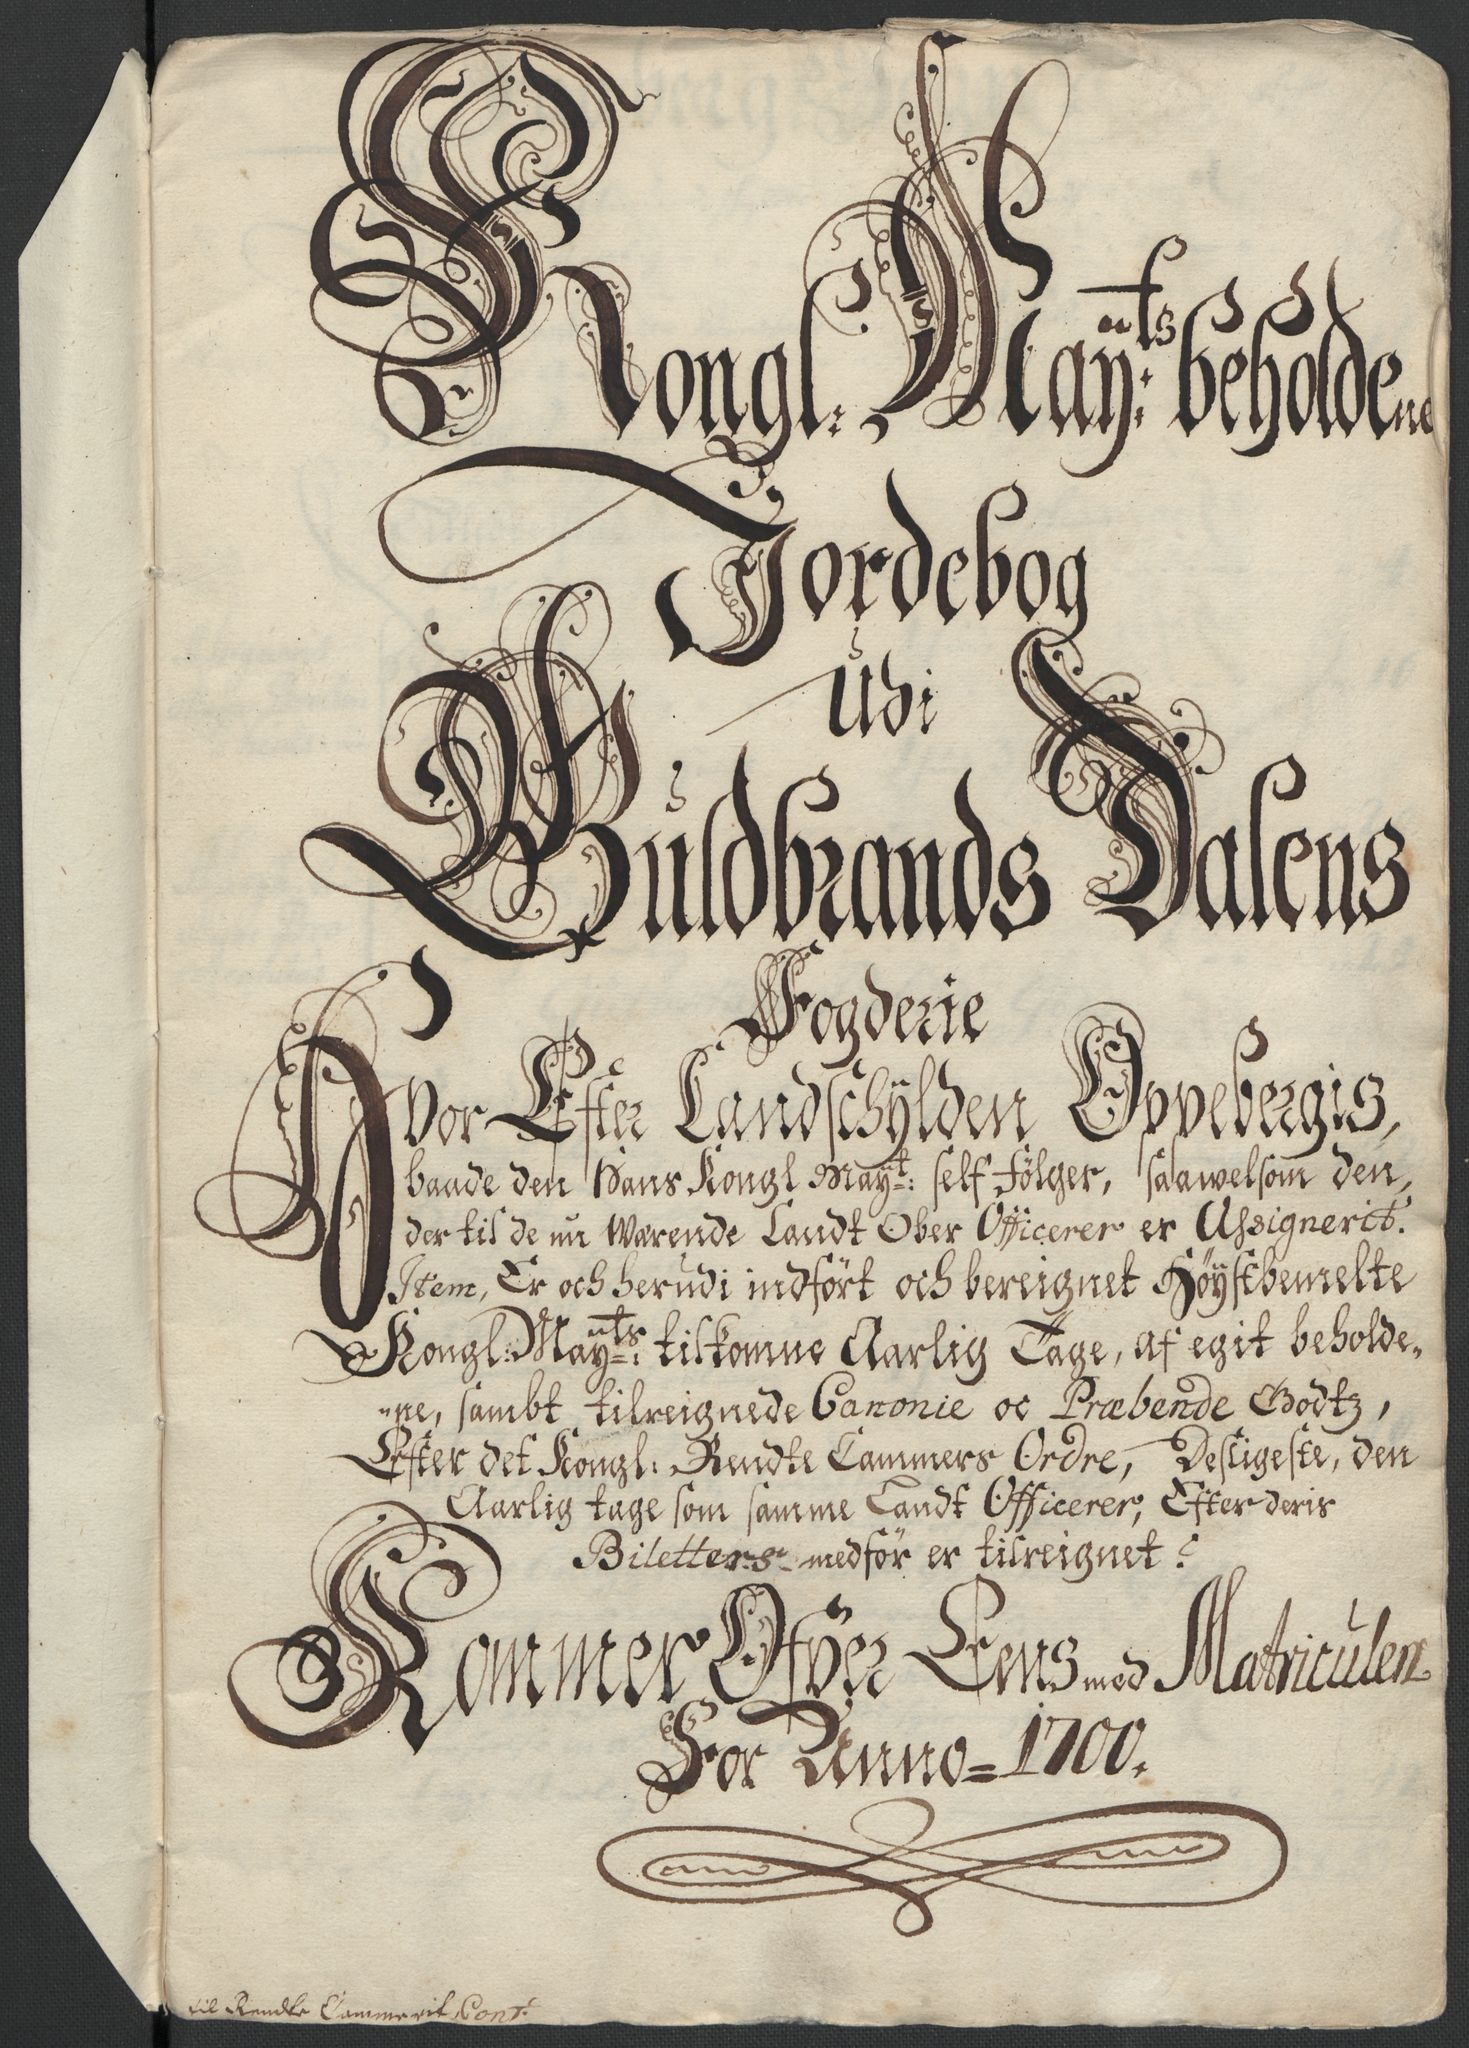 Kongl: May:ts beholdene
Jordebog
Udi
Guldbrands Dalens
Fogderie
Hvor Efter Landschÿlden Opebergis,
baade den Hans Kongl May:t self følger, saawelsom den,
der til de nu Warende Landt Ober Officerer er Assignerit.
Item, Er och herudi indført och bereignet Høystbemelte
Kongl: May:ts tilkomne Aarlig Tage, af egit beholde„
„ne, sambt tilreignede Canonie oc Præbende Godtz,
Efter det Kongl: Rendte Cammers Ordre, Desligeste, den
Aarlig tage som samme Landt Officerer, Efter deris
Biletters medfør er tilreignet.
Kommer Ofver Eens med Matriculen
For Anno = 1700.
til Rendte Cammerit Cont: